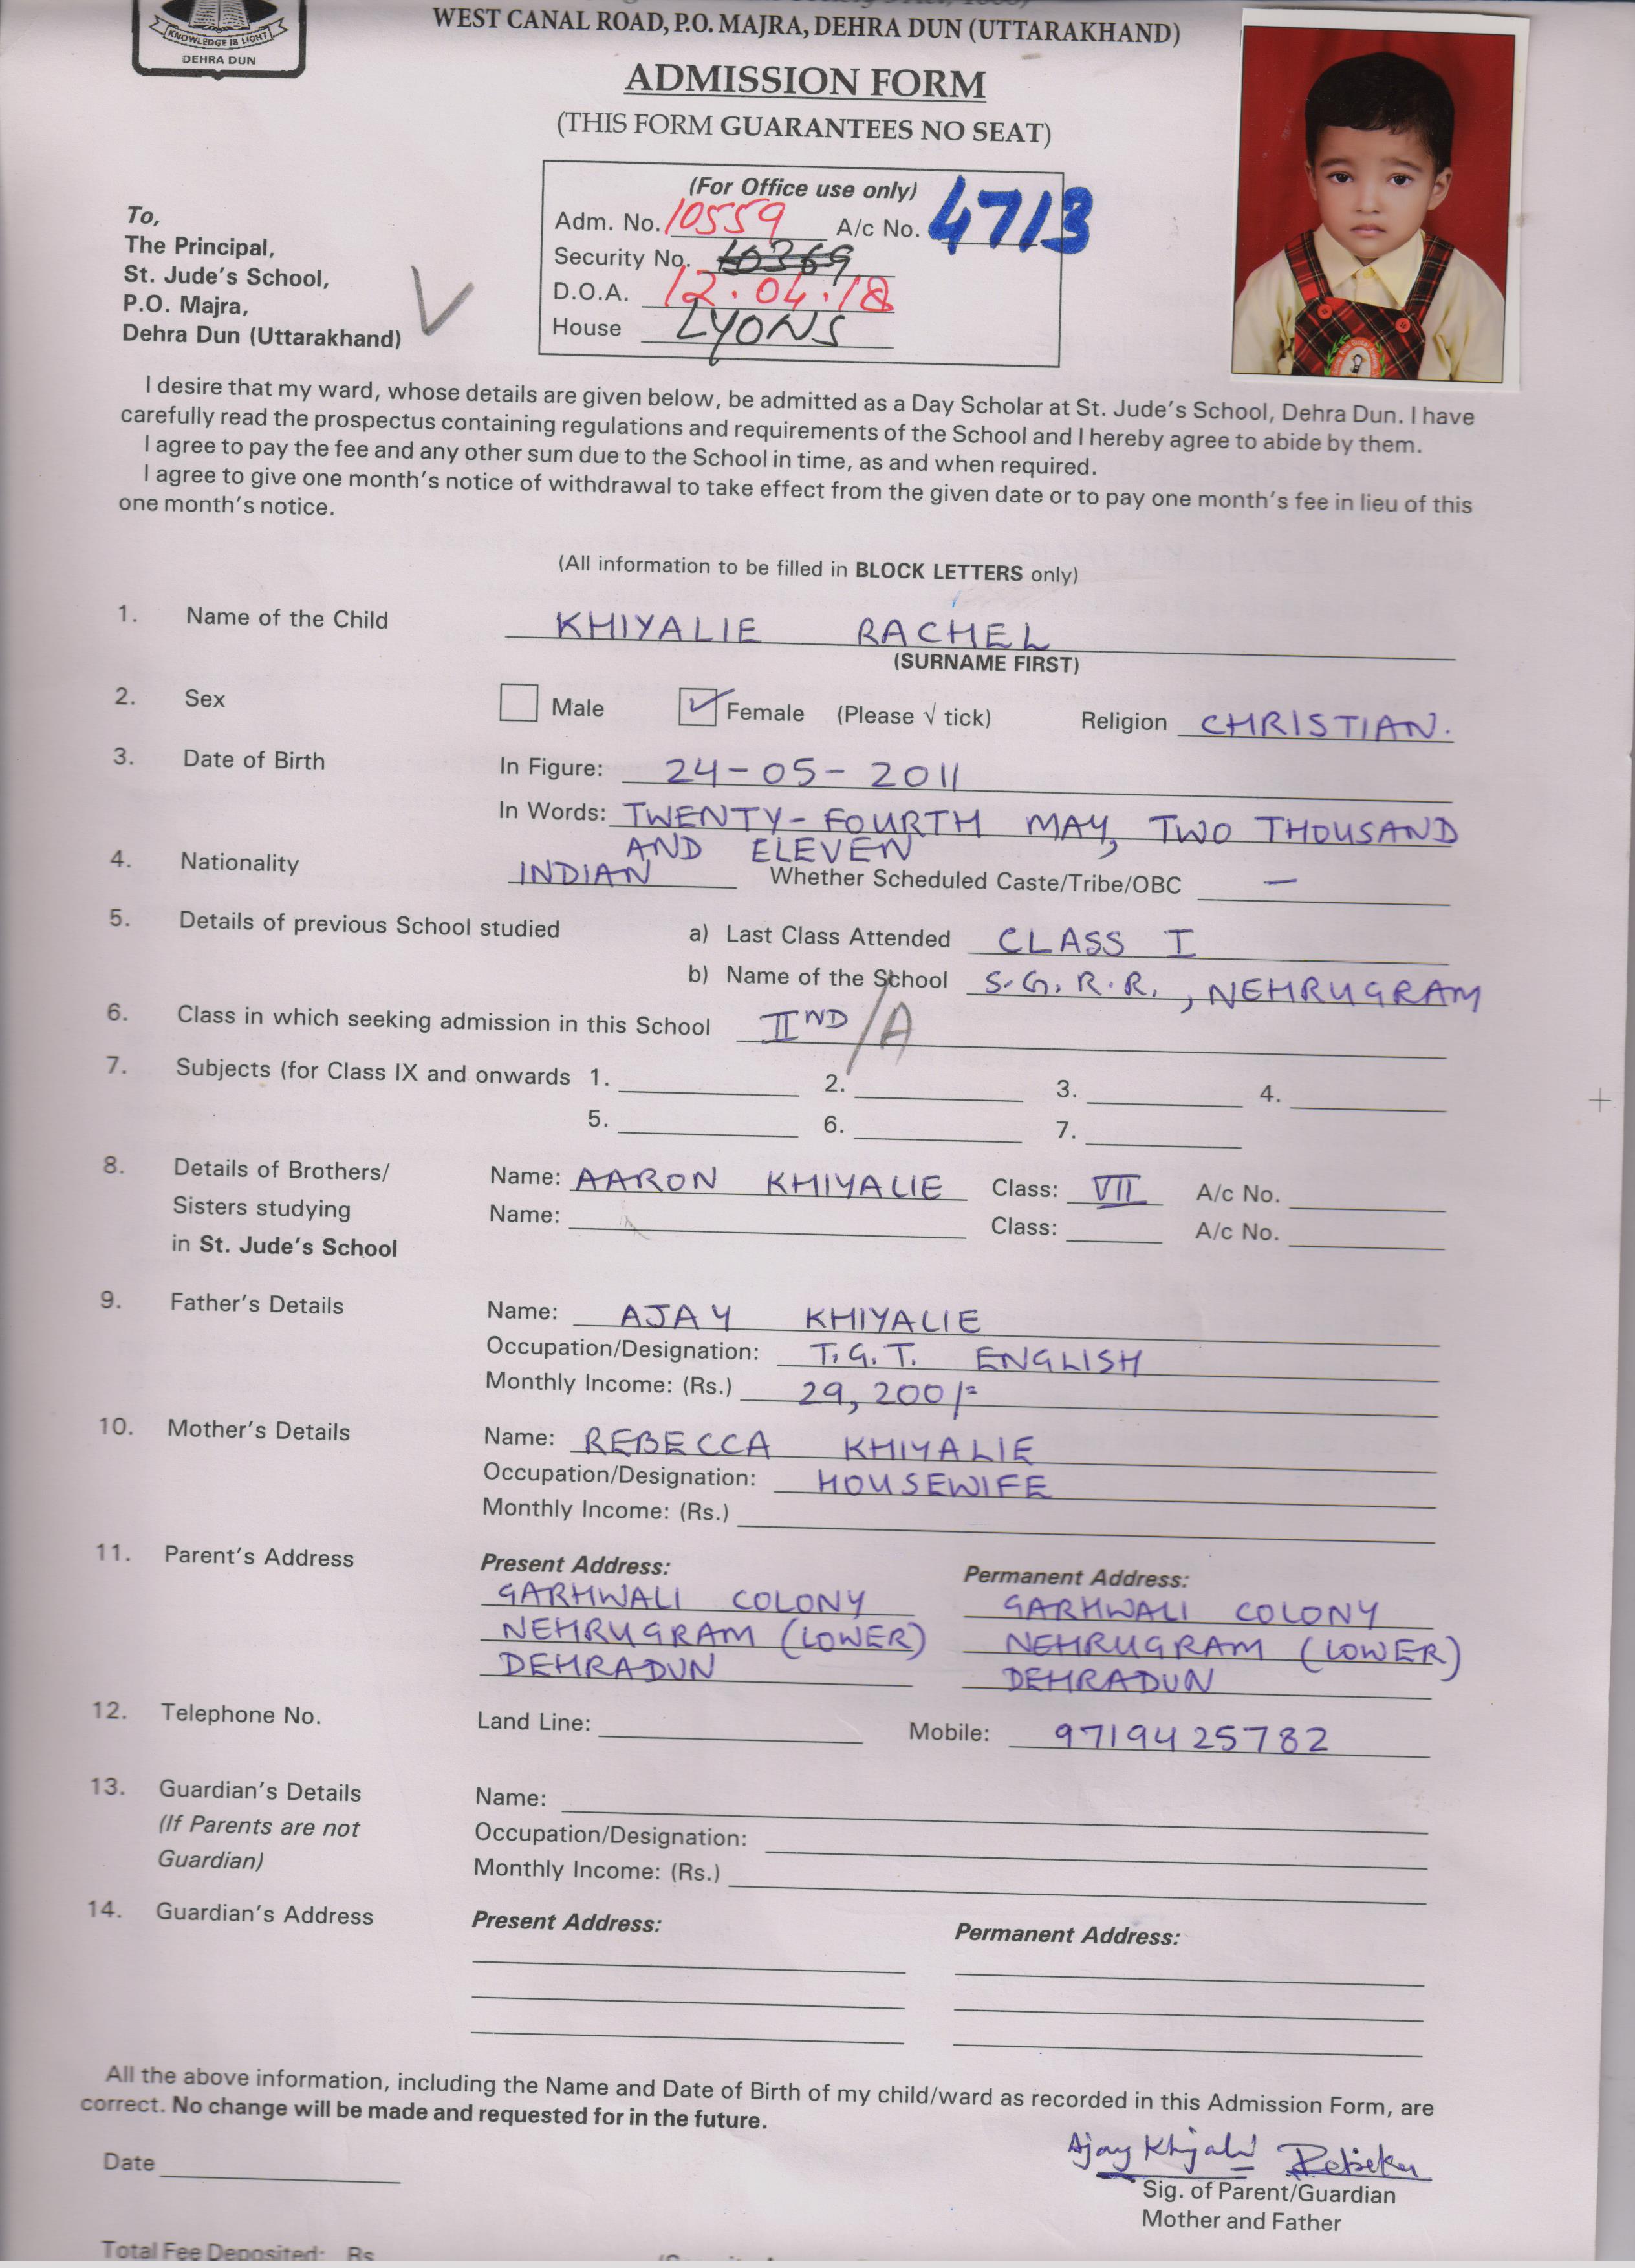 KNOWLEDGE IS LIGHT
DEHRA DUN
WEST CANAL ROAD, P.O. MAJRA, DEHRA DUN (UTTARAKHAND)
ADMISSION FORM
(THIS FORM GUARANTEES NO SEAT)
(For Office use only)
Adm. No. 10559 A/c No. 4713
Security No. 10369
D.O.A. 12.04.18
House LYONS
To,
The Principal,
St. Jude's School,
P.O. Majra,
Dehra Dun (Uttarakhand)
I desire that my ward, whose details are given below, be admitted as a Day Scholar at St. Jude's School, Dehra Dun. I have
carefully read the prospectus containing regulations and requirements of the School and I hereby agree to abide by them.
I agree to pay the fee and any other sum due to the School in time, as and when required.
I agree to give one month's notice of withdrawal to take effect from the given date or to pay one month's fee in lieu of this
one month's notice.
(All information to be filled in BLOCK LETTERS only)
1. Name of the Child KHIYALIE RACHEL
(SURNAME FIRST)
2. Sex Male Female (Please √ tick) Religion CHRISTIAN.
3. Date of Birth In Figure: 24-05-2011
In Words: TWENTY-FOURTH MAY, TWO THOUSAND
AND ELEVEN
4. Nationality INDIAN Whether Scheduled Caste/Tribe/OBC —
5. Details of previous School studied a) Last Class Attended CLASS I
b) Name of the School S.G.R.R., NEHRUGRAM
6. Class in which seeking admission in this School IIND/A
7. Subjects (for Class IX and onwards 1. 2. 3. 4.
5. 6. 7.
8. Details of Brothers/ Name: AARON KHIYALIE Class: VII A/c No.
Sisters studying Name: Class: A/c No.
in St. Jude's School
9. Father's Details Name: AJAY KHIYALIE
Occupation/Designation: T.G.T. ENGLISH
Monthly Income: (Rs.) 29,200/=
10. Mother's Details Name: REBECCA KHIYALIE
Occupation/Designation: HOUSEWIFE
Monthly Income: (Rs.)
11. Parent's Address Present Address: Permanent Address:
GARHWALI COLONY GARHWALI COLONY
NEHRUGRAM (LOWER) NEHRUGRAM (LOWER)
DEHRADUN DEHRADUN
12. Telephone No. Land Line: Mobile: 9719425782
13. Guardian's Details Name:
(If Parents are not Occupation/Designation:
Guardian) Monthly Income: (Rs.)
14. Guardian's Address Present Address: Permanent Address:
All the above information, including the Name and Date of Birth of my child/ward as recorded in this Admission Form, are
correct. No change will be made and requested for in the future.
Ajay Khiyali Rebieka
Date
Sig. of Parent/Guardian
Mother and Father
Total Fee Deposited: Rs